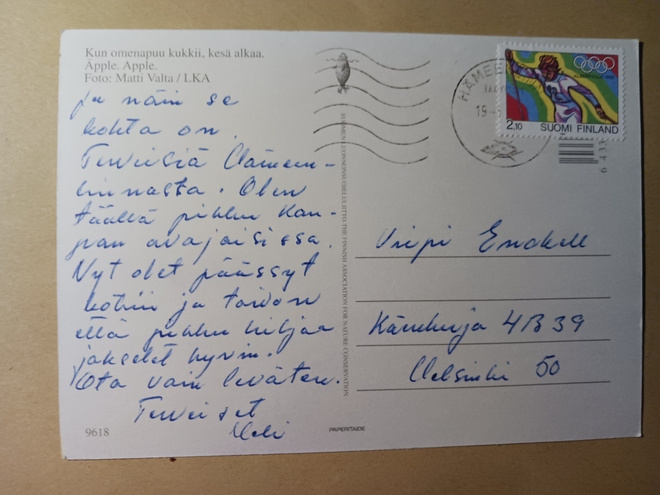 Kun omenapuu kukkii, kesä alkaa.
Äpple. Apple.
Foto: Matti Valta / LKA
Ja näin se
kohta on.
Terveisiä Hämeen-
linnasta. Olen
täällä pikku kau-
pan avajaisissa.
Nyt olet päässyt
kotiin ja toivon
että pikku hiljaa
jakselet hyvin.
Ota vain leväten.
Terveiset
9618
SUOMEN LUONNONSUOJELULIITTO, THE FINNISH ASSOCIATION FOR NATURE CONSERVATION
PAPERITAIDE
HÄMEE
19
2,10 SUOMI FINLAND
Enckell
4B 39
Helsinki 50